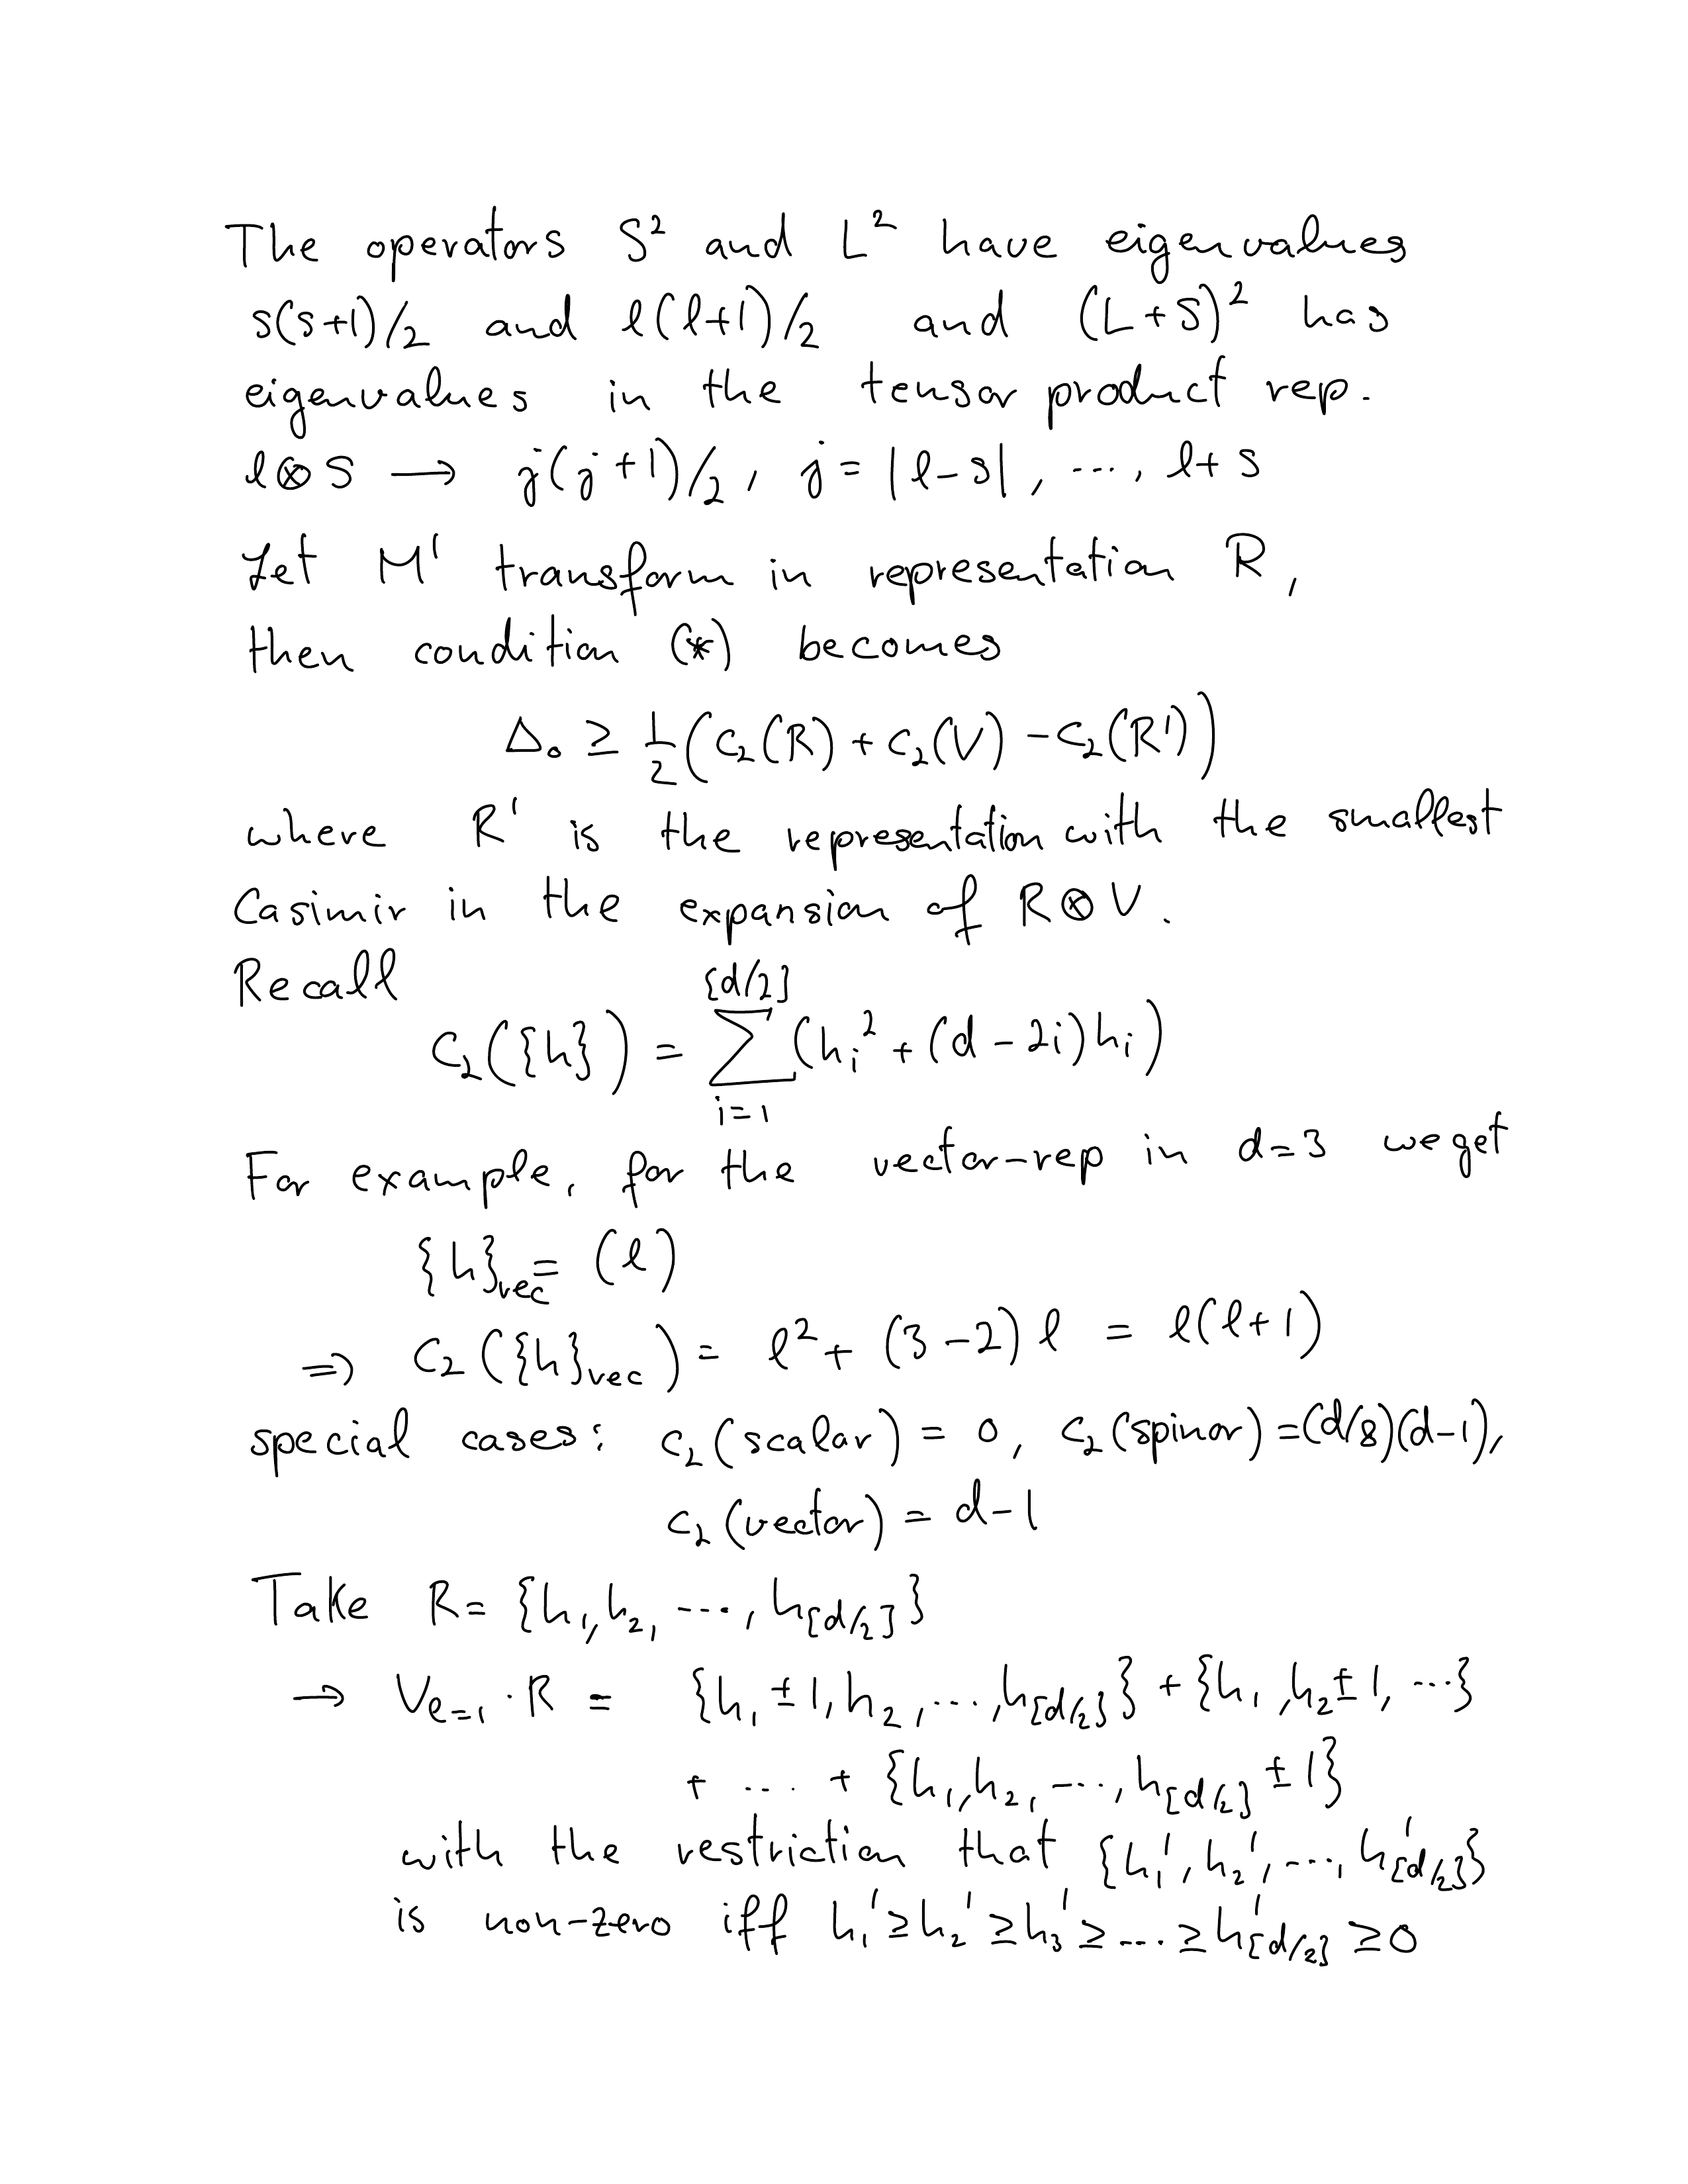 The operators S² and L² have eigenvalues
s(s+1)/2 and ℓ(ℓ+1)/2 and (L+S)² has
eigenvalues in the tensor product rep.
ℓ⊗S ⟶ j(j+1)/2, j = |ℓ-s|, ..., ℓ+s
Let M' transform in representation R,
then condition (*) becomes
Δ₀ ≥ 1/2 (c₂(R) + c₂(V) - c₂(R'))
where R' is the representation with the smallest
Casimir in the expansion of R⊗V.
Recall
c₂({h}) = ∑_{i=1}^{[d/2]} (h_i² + (d-2i)h_i)
For example, for the vector-rep in d=3 we get
{h}_vec = (ℓ)
⇒ c₂({h}_vec) = ℓ² + (3-2)ℓ = ℓ(ℓ+1)
special cases: c₂(scalar) = 0, c₂(spinor) = (d/8)(d-1),
c₂(vector) = d-1
Take R = {h₁, h₂, ..., h_[d/2]}
→ V_{ℓ=1} · R = {h₁ ± 1, h₂, ..., h_[d/2]} + {h₁, h₂ ± 1, ...}
+ ... + {h₁, h₂, ..., h_[d/2] ± 1}
with the restriction that {h₁', h₂', ..., h'_[d/2]}
is non-zero iff h₁' ≥ h₂' ≥ h₃' ≥ ... ≥ h'_[d/2] ≥ 0